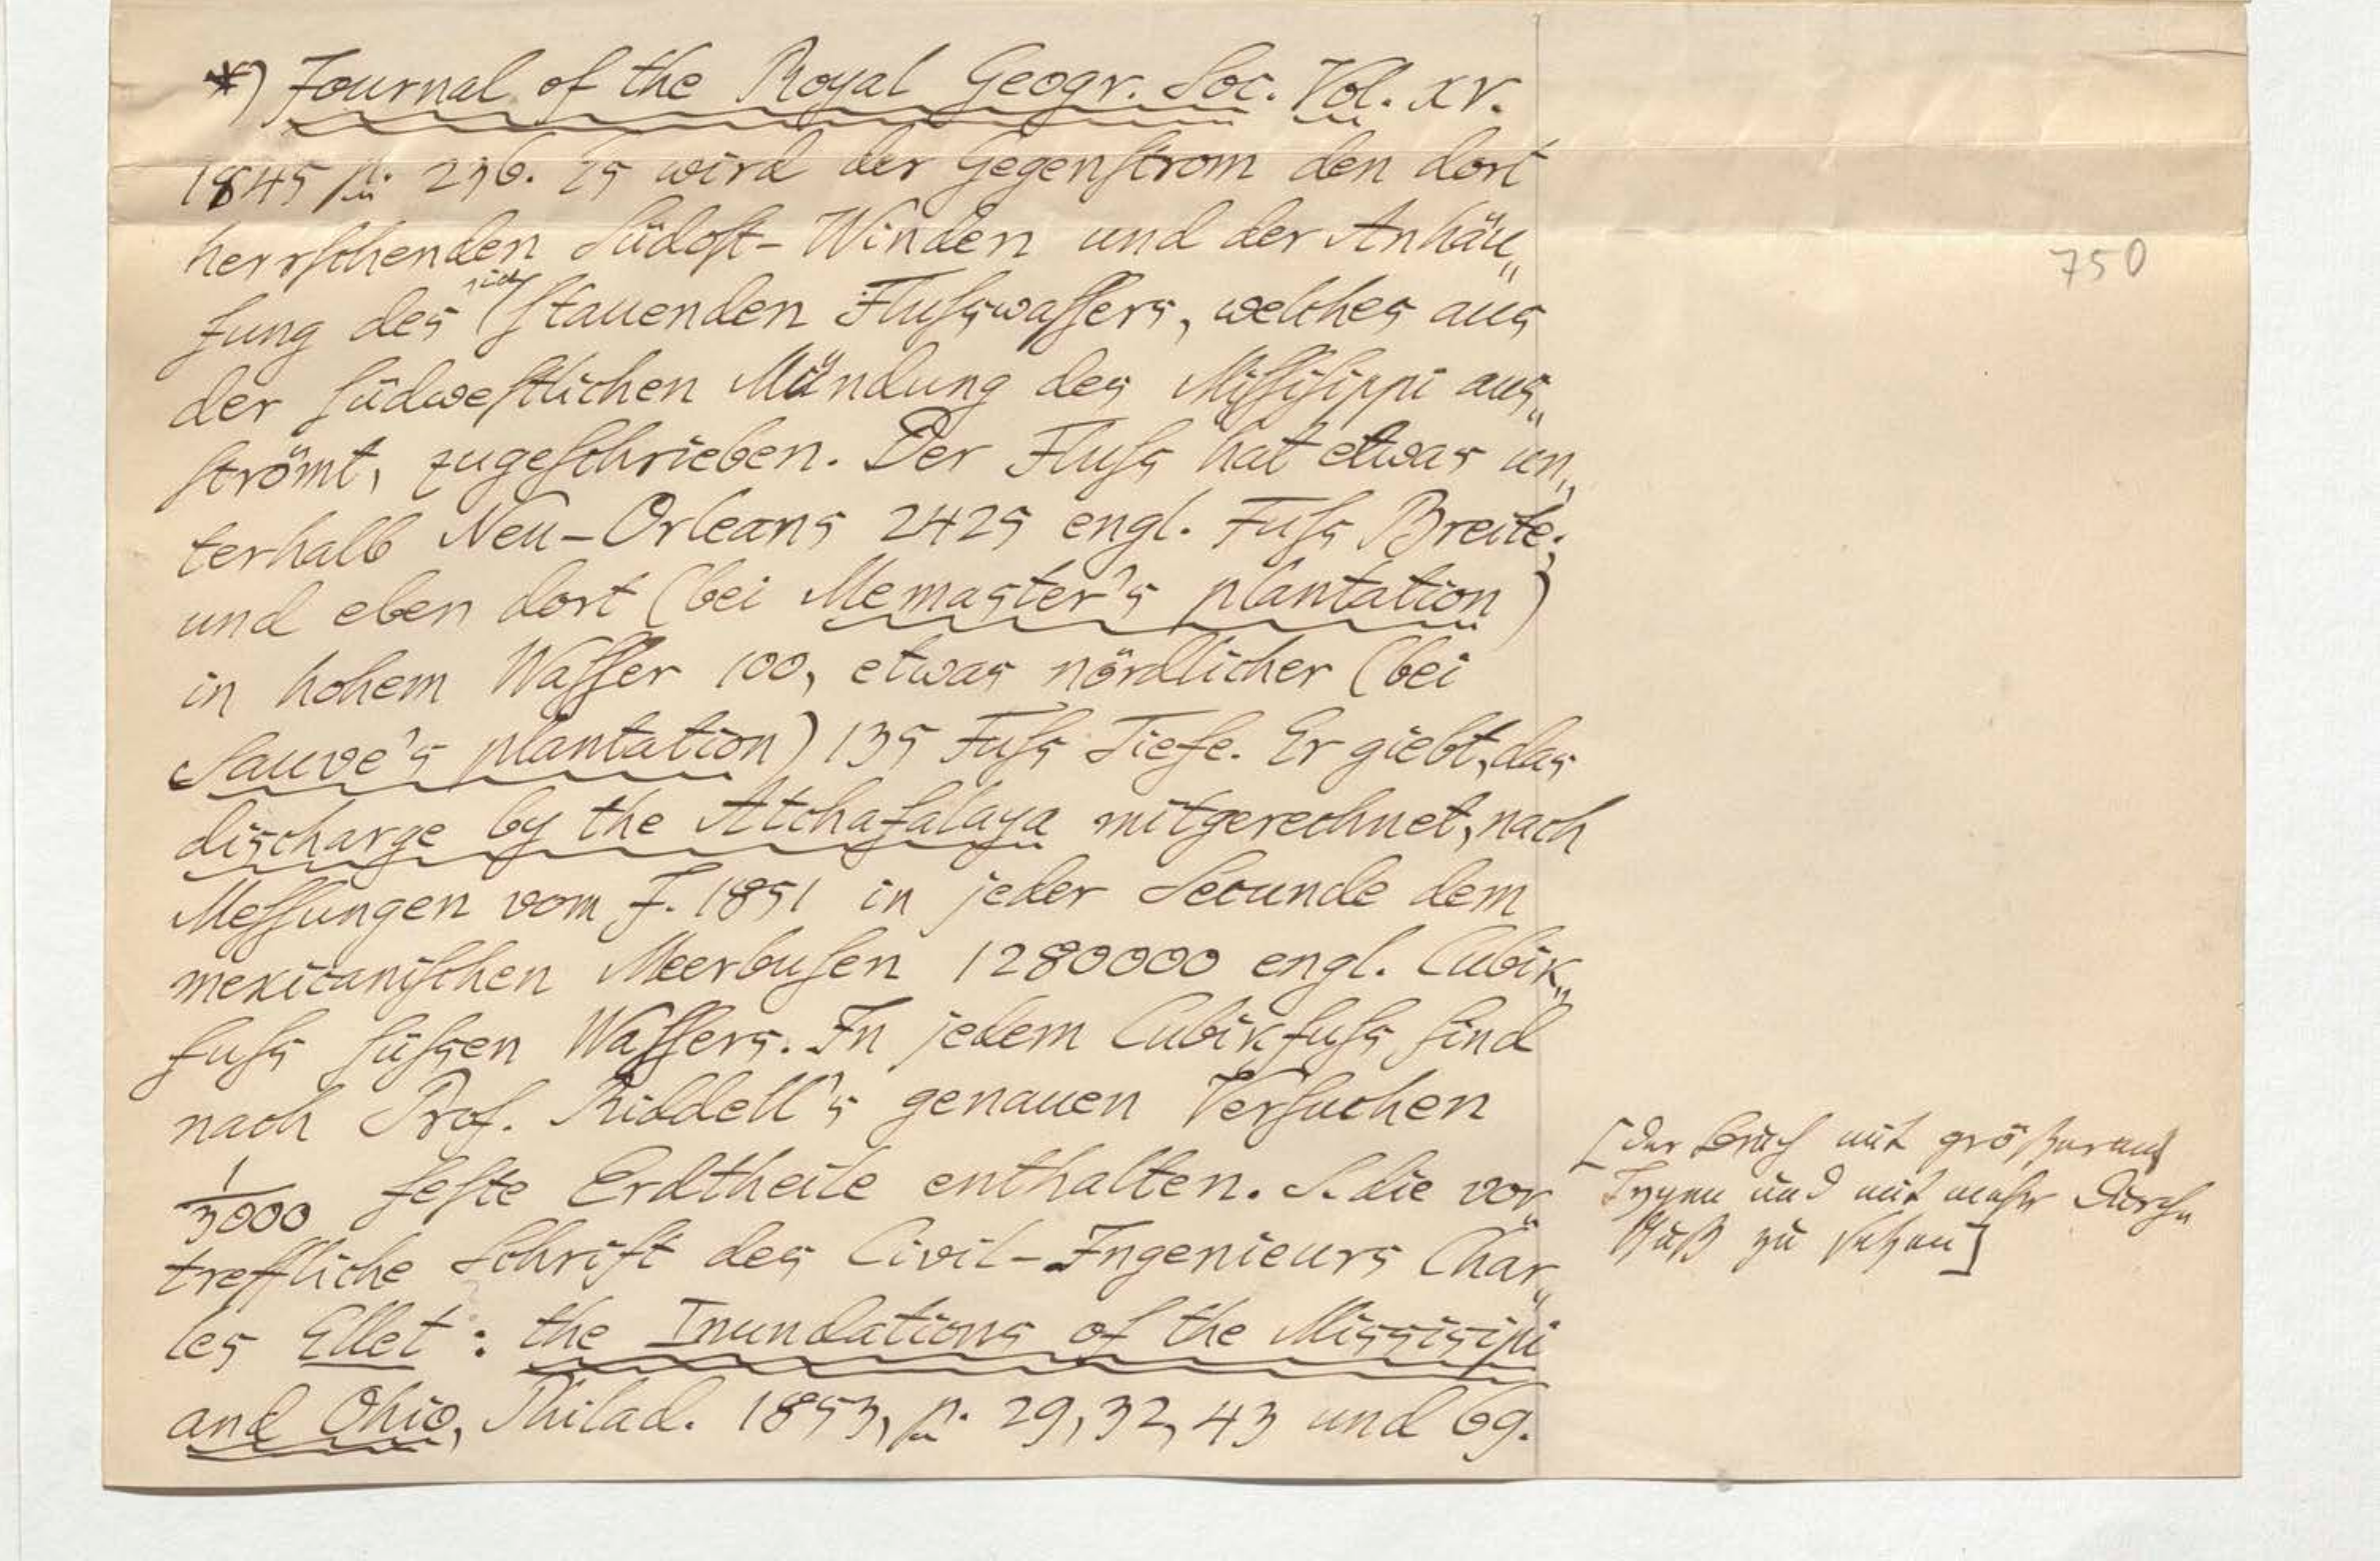 *) Journal of the Royal Geogr. Soc. Vol. XV.
1845 p. 236. Es wird der Gegenstrom den dort
herrschenden Südost-Winden und der Anhäu„
750
fung des sich stauenden Flußwassers, welches aus
der südwestlichen Mündung des Missisippi aus„
strömt, zugeschrieben. Der Fluß hat etwas un„
terhalb Neu-Orleans 2425 engl. Fuß Breite;
und eben dort (bei Memaster's plantation)
in hohem Wasser 100, etwas nördlicher (bei
Sauve's plantation) 135 Fuß Tiefe. Er giebt, das
discharge by the Atchafalaya mitgerechnet, nach
Messungen vom J. 1851 in jeder Secunde dem
mexicanischen Meerbusen 1280000 engl. Cubik„
fuß süßen Wassers. In jedem Cubikfuß sind
nach Prof. Riddell's genauen Versuchen
1/3000 feste Erdtheile enthalten. S. die vor„
treffliche Schrift des Civil-Ingenieurs Char„
les Ellet: the Inundations of the Missisipi
and Ohio, Philad. 1853, p. 29, 32, 43 und 69.
[der Bruch mit größeren
Typen und mit mehr Durch„
zu setzen]